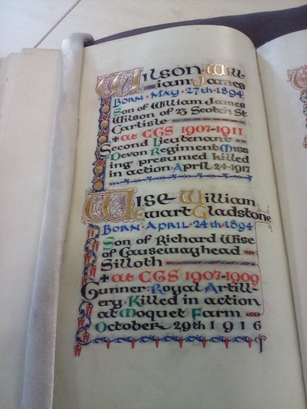 Wilson Will-
iam James
Born · May · 27th 1894
Son of William James
Wilson of 23 Scotch St
Carlisle
+ at CGS 1907-1911
Second Lieutenant
Devon Regiment Miss
ing presumed killed
in action April 24·1917
Wise William
Ewart Gladstone
Born · April · 24th 1894
Son of Richard Wise
of Causewayhead
Silloth
+ at CGS 1907-1909
Gunner Royal Artill-
ery. Killed in action
at Moquet Farm
October 29th 1916